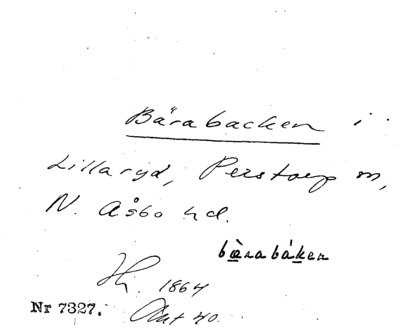 Bärabacken i
Lillaryd, Perstorp sn,
N. Åsbo hd.
bærabáken
1864
Nr 7327. 40.